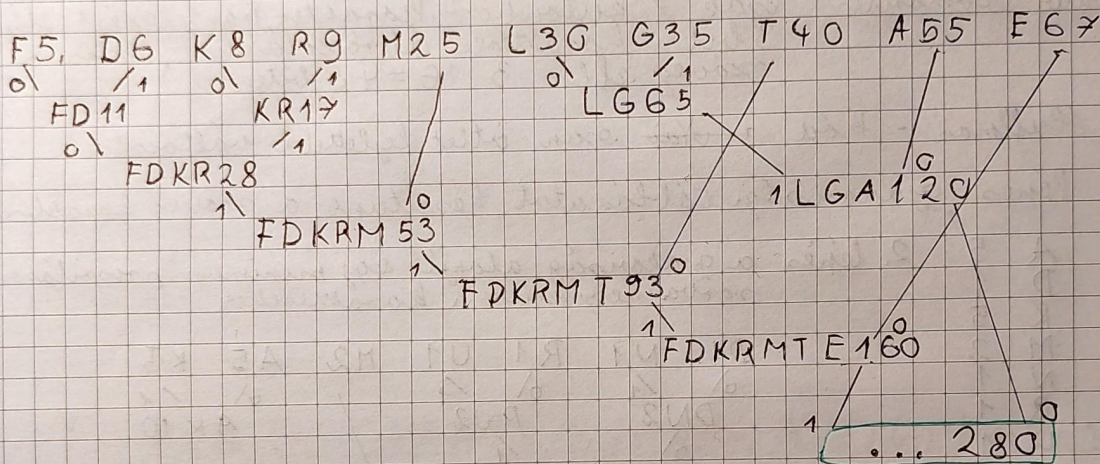 F5, D6 K8 R9 M25 L30 G35 T40 A55 E67
0 1 0 1 0 1
FD11 KR17 LG65
0 1 0
FDKR28 1LGA120
1 0
FDKRM53
1 0
FDKRMT93
1 0
FDKRMTE160
1 0
... 280